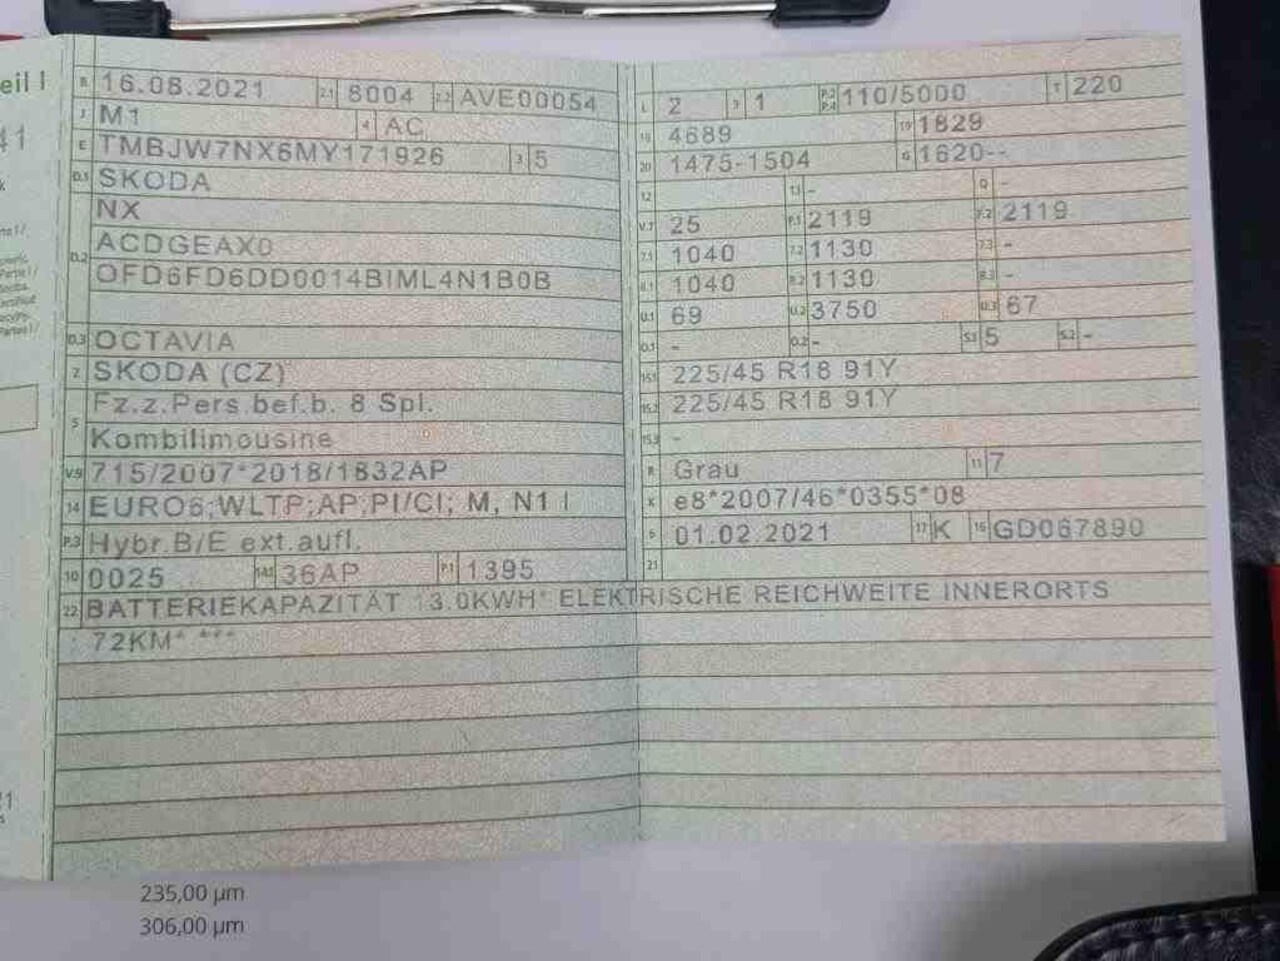 eil I
B 16.08.2021 2.1 8004 2.2 AVE00054
J M1 4 AC
E TMBJW7NX6MY171926 3 5
D.1 SKODA
D.2 NX
ACDGEAX0
OFD6FD6DD0014BIML4N1B0B
D.3 OCTAVIA
2 SKODA (CZ)
5 Fz.z.Pers.bef.b. 8 Spl.
Kombilimousine
V.9 715/2007*2018/1832AP
14 EURO6;WLTP;AP;PI/CI; M, N1 I
P.3 Hybr.B/E ext.aufl.
10 0025 14.1 36AP P.1 1395
L 2 9 1 P.2 P.4 110/5000 T 220
18 4689 19 1829
20 1475-1504 G 1620--
12 13 - Q -
V.7 25 F.1 2119 F.2 2119
7.1 1040 7.2 1130 7.3 -
8.1 1040 8.2 1130 8.3 -
U.1 69 U.2 3750 U.3 67
O.1 - O.2 - S.1 5 S.2 -
15.1 225/45 R18 91Y
15.2 225/45 R18 91Y
15.3 -
R Grau 11 7
K e8*2007/46*0355*08
6 01.02.2021 17 K 16 GD067890
21
22 BATTERIEKAPAZITÄT 13.0KWH* ELEKTRISCHE REICHWEITE INNERORTS
: 72KM* ***
235,00 µm
306,00 µm